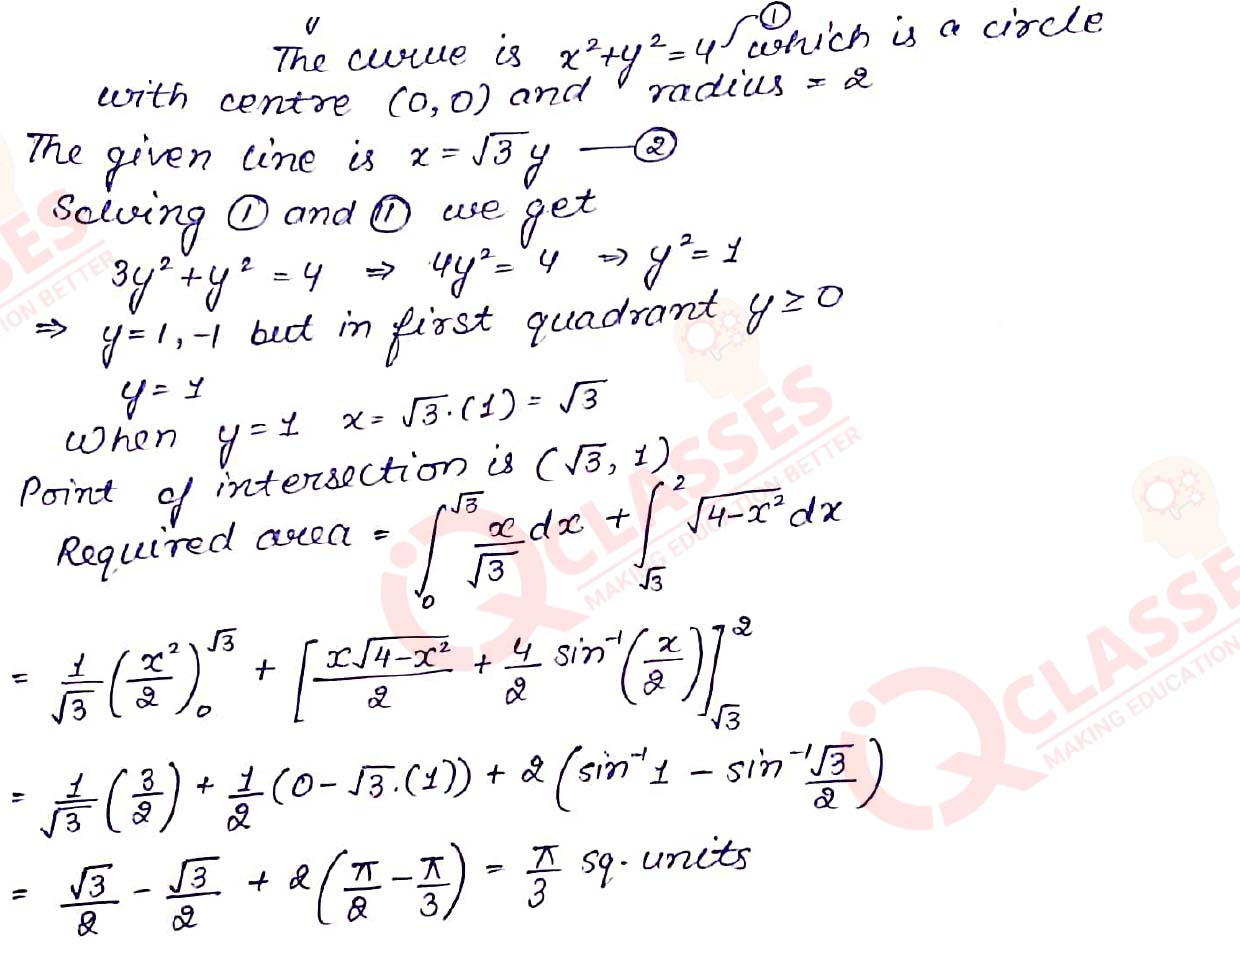 The curve is x²+y²=4 ① which is a circle
with centre (0,0) and radius = 2
The given line is x = √3 y —②
Solving ① and ⑪ we get
3y²+y² = 4 ⇒ 4y² = 4 ⇒ y² = 1
⇒ y=1,-1 but in first quadrant y ≥ 0
y = 1
When y = 1 x = √3.(1) = √3
Point of intersection is (√3, 1)
Required area = ∫₀^√3 x/√3 dx + ∫_√3^2 √(4-x²) dx
= 1/√3 (x²/2)₀^√3 + [x√(4-x²)/2 + 4/2 sin⁻¹(x/2)]_√3^2
= 1/√3 (3/2) + 1/2 (0-√3.(1)) + 2 (sin⁻¹1 - sin⁻¹ √3/2)
= √3/2 - √3/2 + 2 (π/2 - π/3) = π/3 sq. units
SES
ION BETTER
CLASSES
MAKING EDUCATION BETTER
CLASSE
MAKING EDUCATION